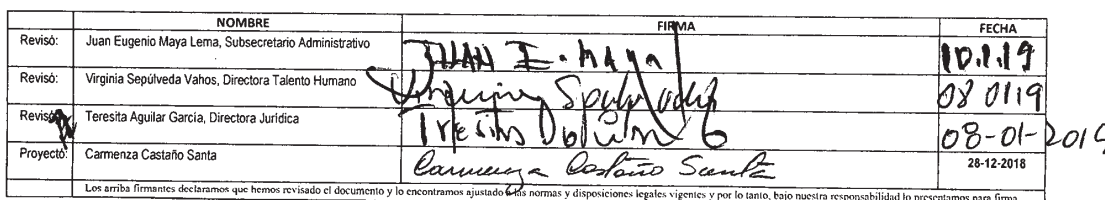 NOMBRE FIRMA FECHA
Revisó: Juan Eugenio Maya Lema, Subsecretario Administrativo JUAN E. MAYA 10.1.19
Revisó: Virginia Sepúlveda Vahos, Directora Talento Humano 08 01 19
Revisó: Teresita Aguilar García, Directora Jurídica 08-01-2019
Proyectó: Carmenza Castaño Santa Carmenza Castaño Santa 28-12-2018
Los arriba firmantes declaramos que hemos revisado el documento y lo encontramos ajustado a las normas y disposiciones legales vigentes y por lo tanto, bajo nuestra responsabilidad lo presentamos para firma